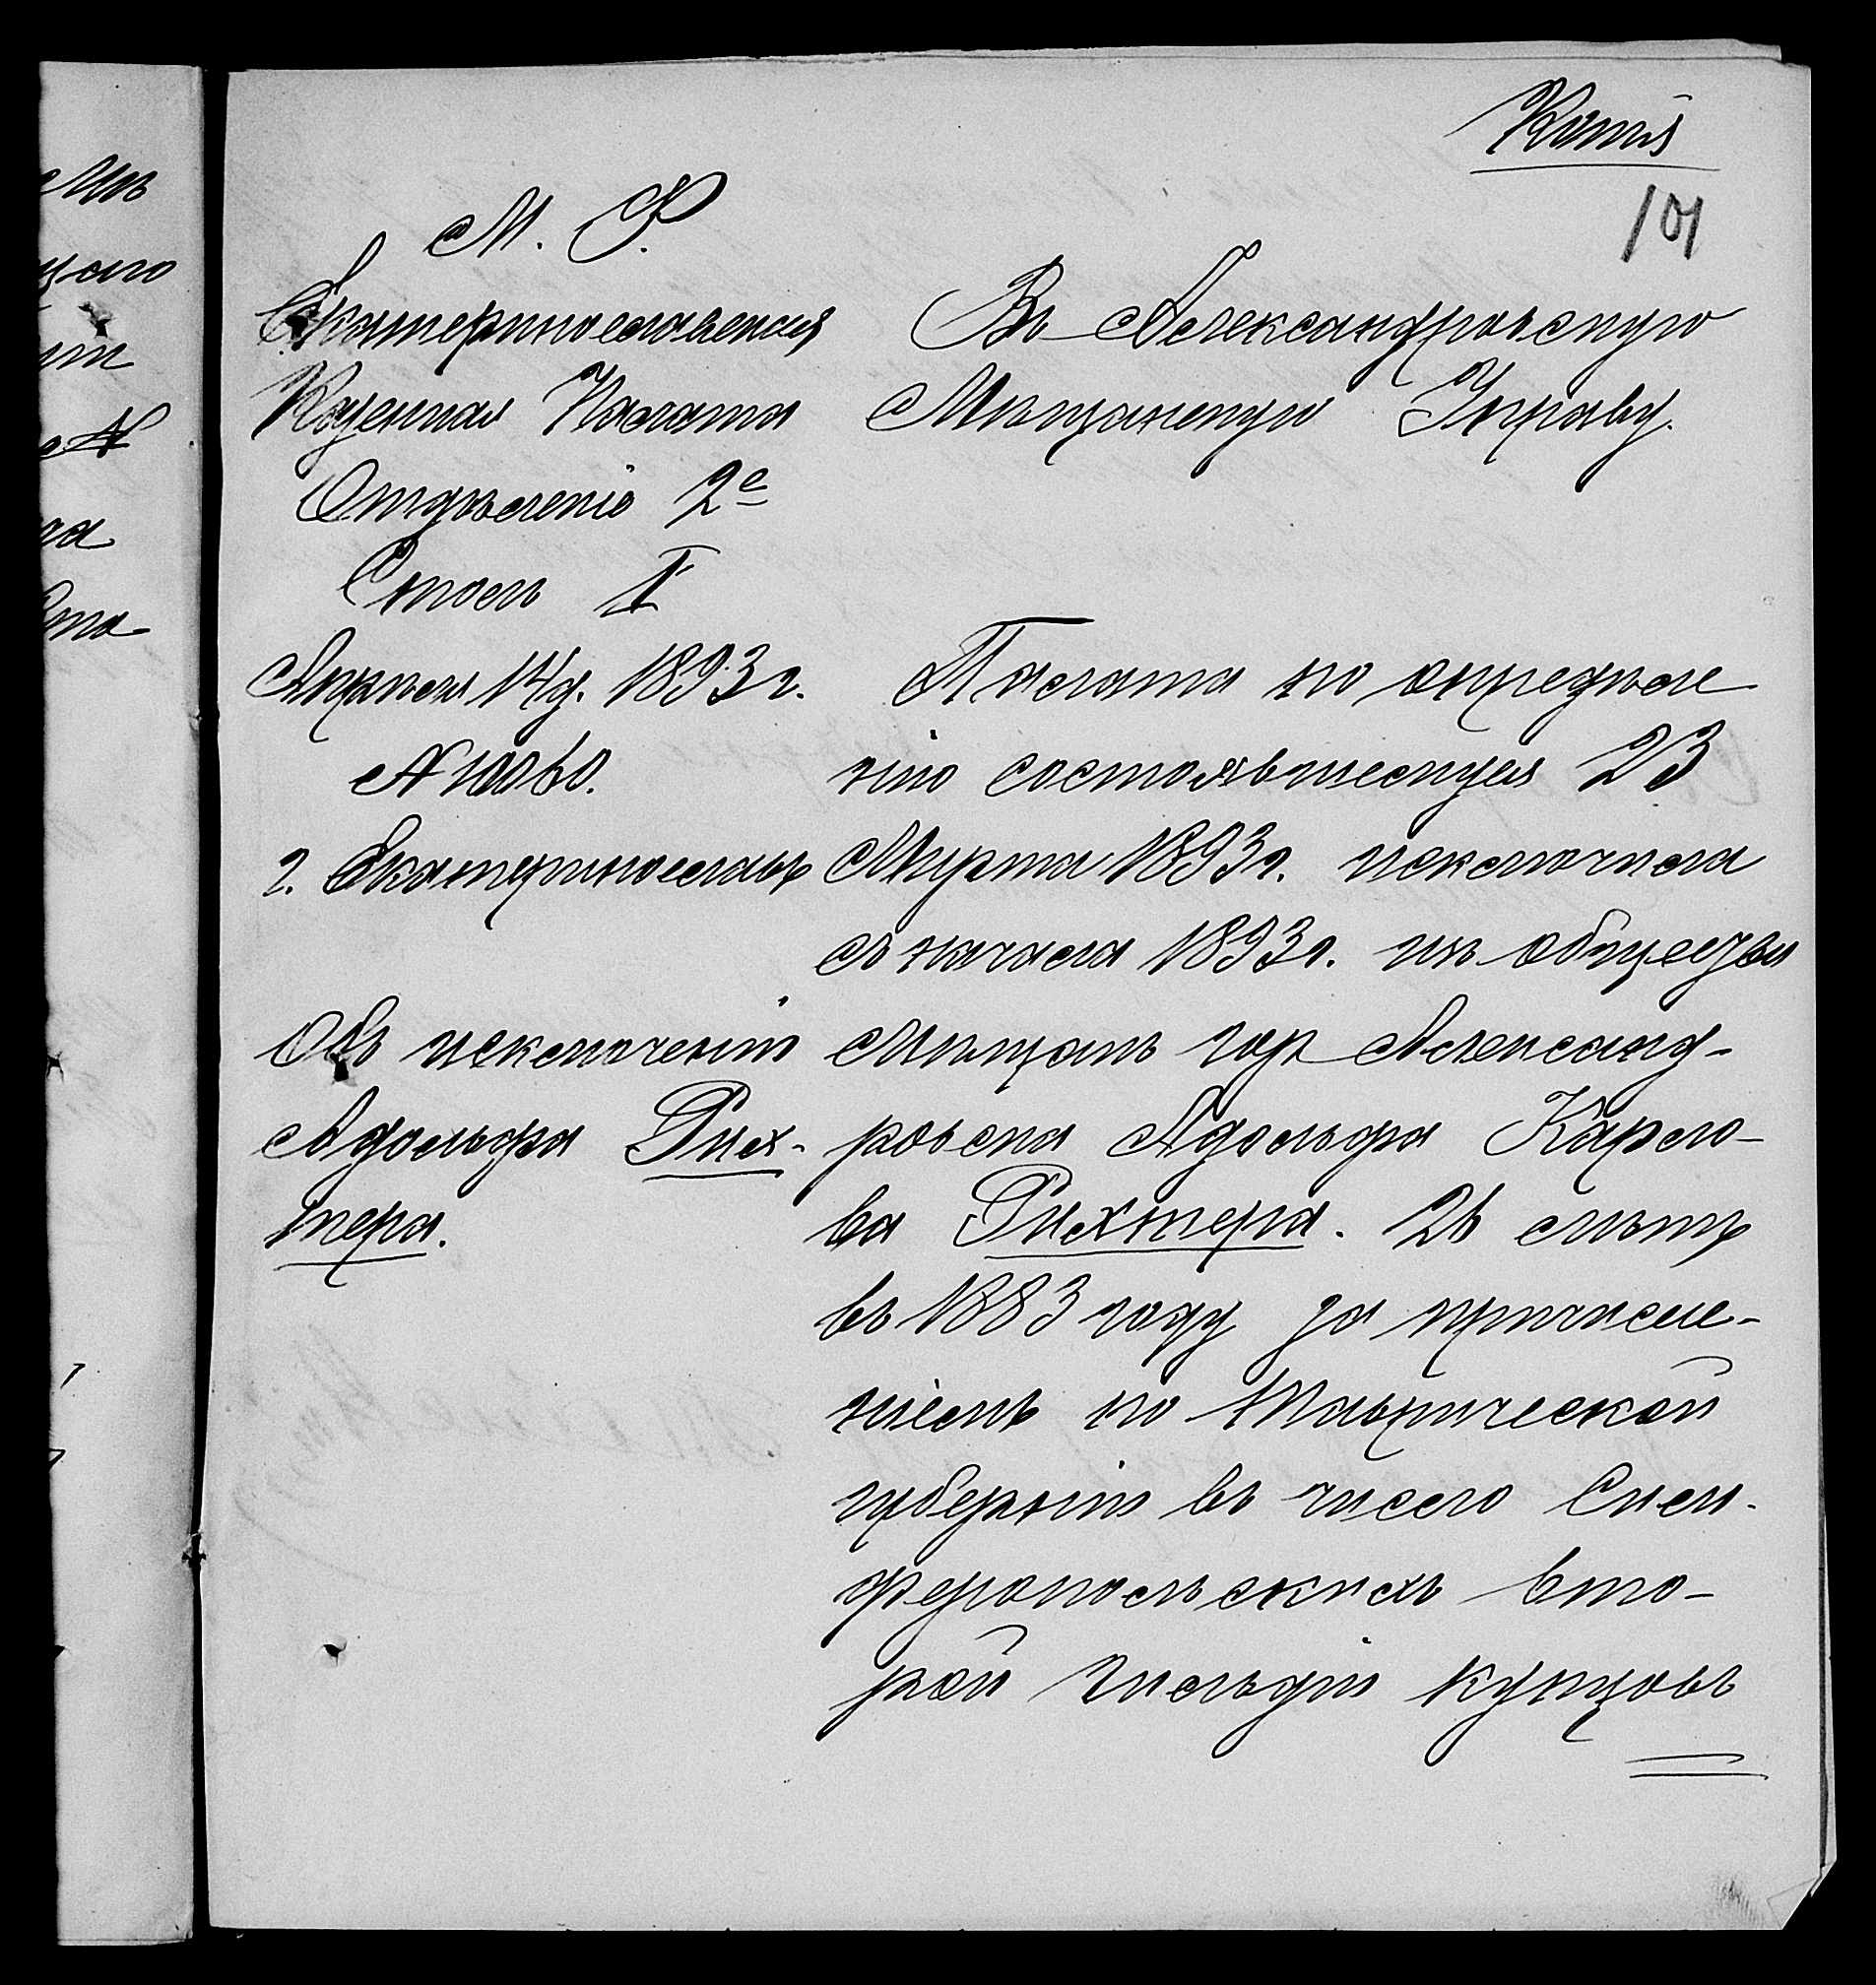 Копія
101
М. Ф.
Екатеринославская
Казенная Палата
Отдѣленіе 2е
Столъ I
Апрѣля 14 д. 1893 г.
г. Екатеринославъ
Объ исключеніи
Адольфа Рих-
тера.
Въ Александровскую
Мѣщанскую Управу.
Палата по опредѣле
нію состоявшемуся 23
Марта 1893 г. исключила
съ начала 1893 г. изъ общества
мѣщанъ гор Александ-
ровска Адольфа Карло-
ва Рихтера. 26 лѣтъ
въ 1883 году за причисле-
ніемъ по Таврической
губерніи въ число Сим-
феропольскихъ вто-
рой гильдіи купцовъ